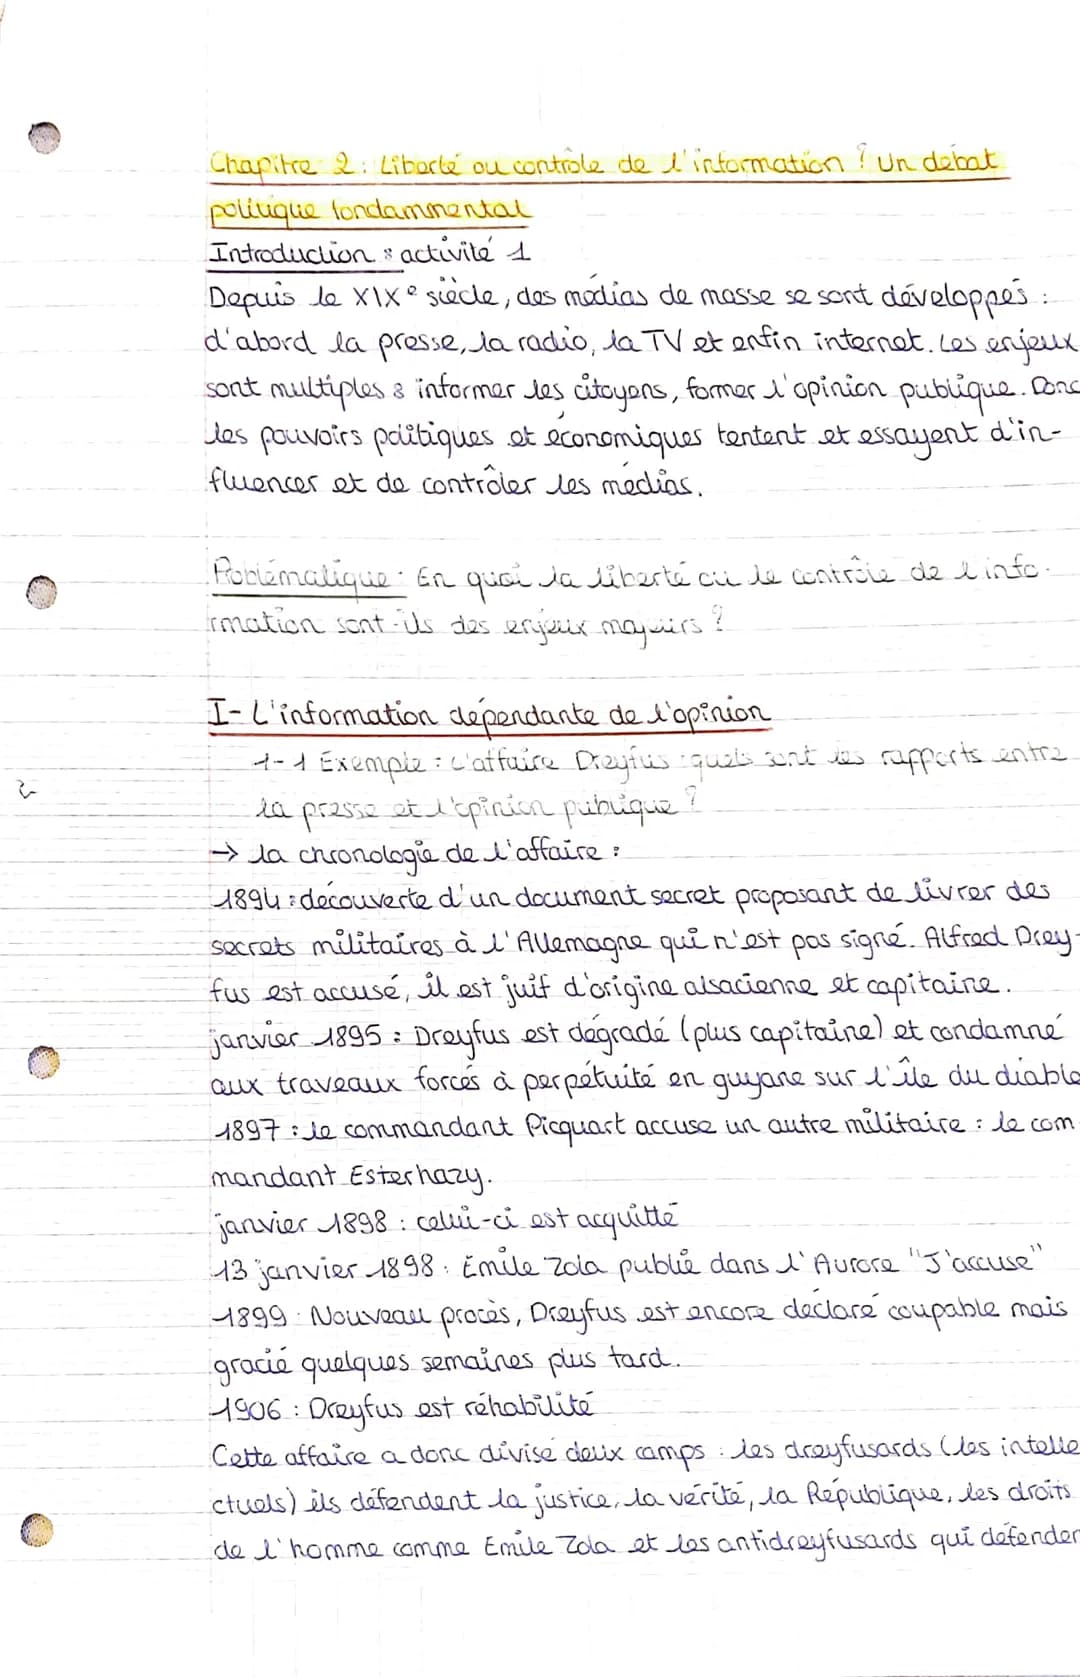 Chapitre 2 : Liberté ou contrôle de l'information ? Un débat
politique fondammental
Introduction : activité 1
Depuis le XIXe siècle, des médias de masse se sont développés :
d'abord la presse, la radio, la TV et enfin internet. Les enjeux
sont multiples : informer les citoyens, former l'opinion publique. Donc
les pouvoirs politiques et économiques tentent et essayent d'in-
fluencer et de contrôler les médias.
Problématique : En quoi la liberté ou le contrôle de l'info-
rmation sont-ils des enjeux majeurs ?
I- L'information dépendante de l'opinion
1-1 Exemple : L'affaire Dreyfus : quels sont les rapports entre
la presse et l'opinion publique ?
→ la chronologie de l'affaire :
1894 : découverte d'un document secret proposant de livrer des
secrets militaires à l'Allemagne qui n'est pas signé. Alfred Drey-
fus est accusé, il est juif d'origine alsacienne et capitaine.
janvier 1895 : Dreyfus est dégradé (plus capitaine) et condamné
aux traveaux forcés à perpétuité en guyane sur l'île du diable
1897 : le commandant Picquart accuse un autre militaire : le com
mandant Esterhazy.
janvier 1898 : celui-ci est acquitté
13 janvier 1898 : Emile Zola publie dans l'Aurore "J'accuse"
1899 : Nouveau procès, Dreyfus est encore déclaré coupable mais
gracié quelques semaines plus tard.
1906 : Dreyfus est réhabilité
Cette affaire a donc divisé deux camps : les dreyfusards (les intelle
ctuels) ils défendent la justice, la vérité, la République, les droits
de l'homme comme Emile Zola et les antidreyfusards qui défenden